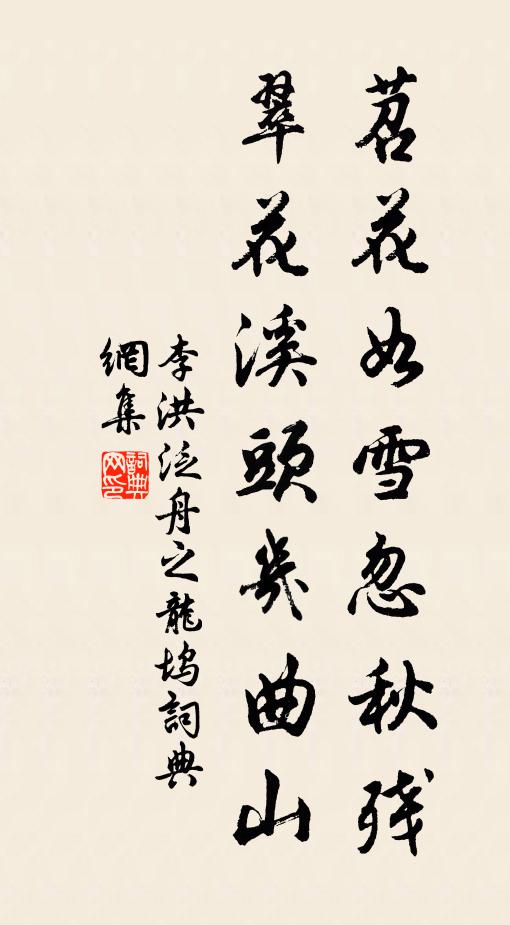 苕花如雪忽秋残
翠花溪頭幾曲山
李洪泛舟之龍塢詞典
網集
詞典
网印